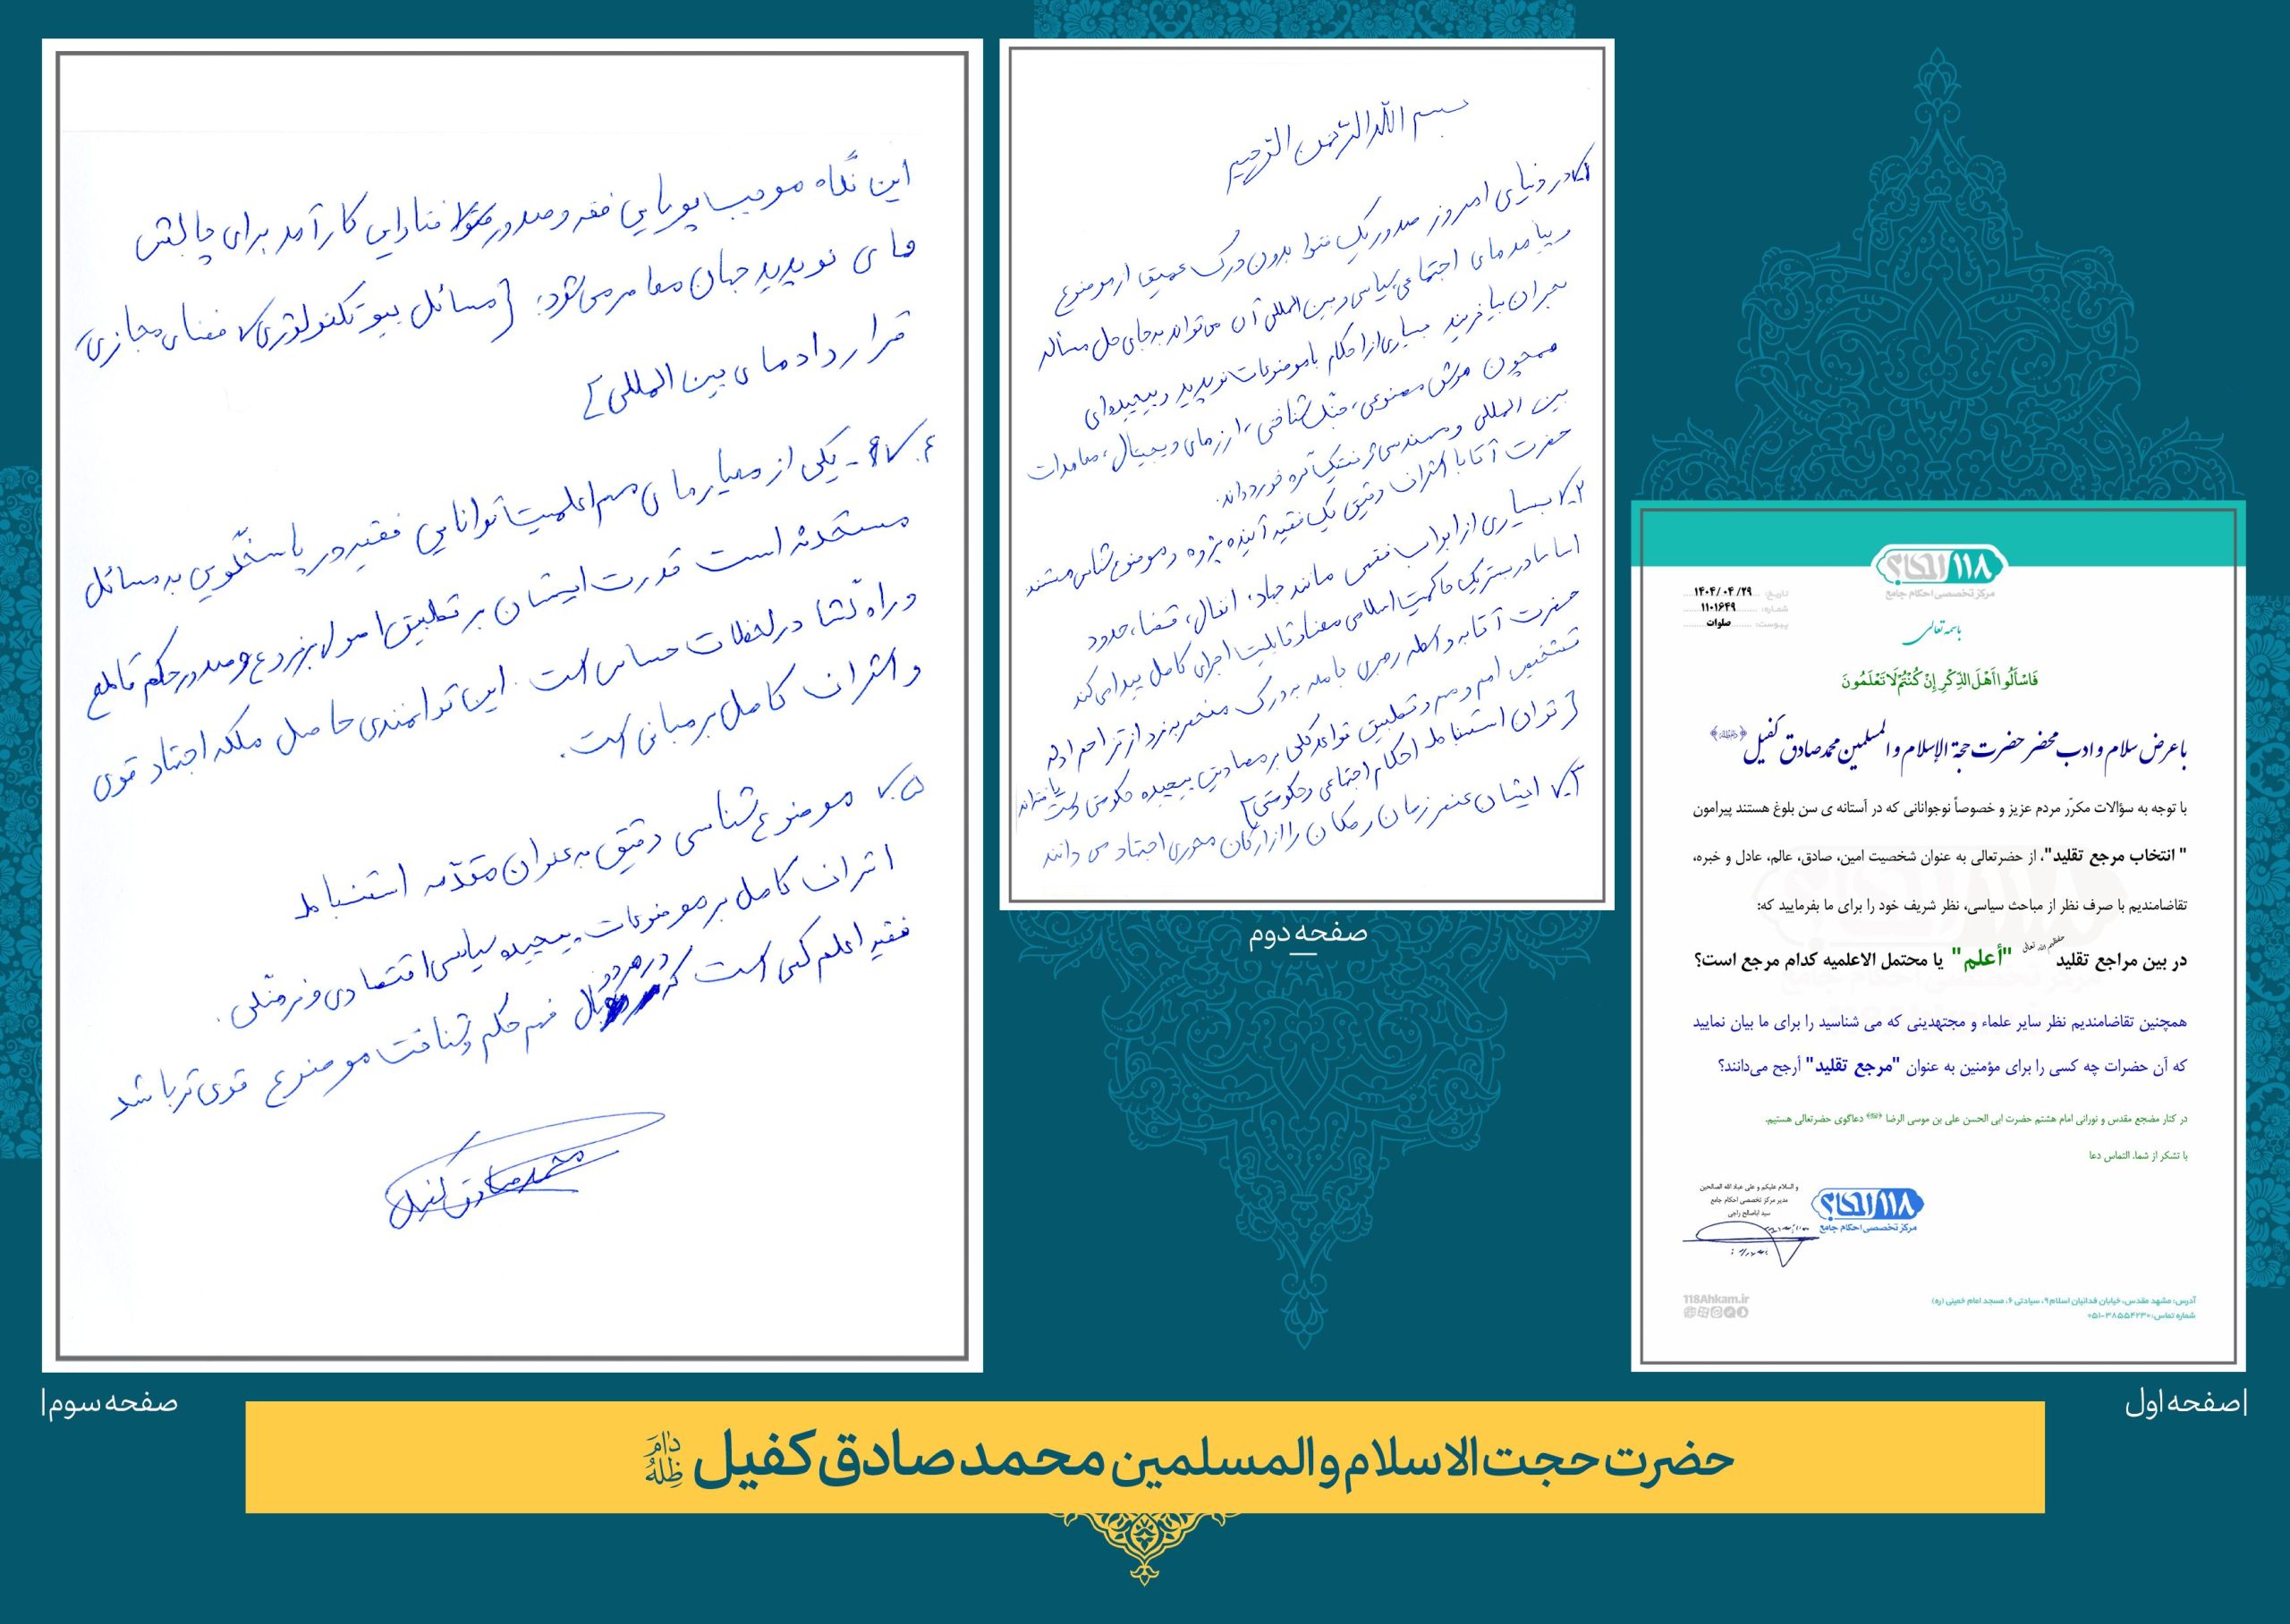 ۱۱۸ احکام
مرکز تخصصی احکام جامع
تاریخ: ۱۴۰۴/۰۴/۲۹
شماره: ۱۱۰۱۶۴۹
پیوست: صلوات
باسمه تعالی
فَاسْأَلُوا أَهْلَ الذِّكْرِ إِنْ كُنْتُمْ لَا تَعْلَمُونَ
با عرض سلام و ادب محضر حضرت حجة الإسلام و المسلمین محمد صادق کفیل
با توجه به سؤالات مکرّر مردم عزیز و خصوصاً نوجوانانی که در آستانه ی سن بلوغ هستند پیرامون
" انتخاب مرجع تقلید"، از حضرتعالی به عنوان شخصیت امین، صادق، عالم، عادل و خبره،
تقاضامندیم با صرف نظر از مباحث سیاسی، نظر شریف خود را برای ما بفرمایید که:
در بین مراجع تقلید حفظهم الله تعالی "أعلم" یا محتمل الاعلمیه کدام مرجع است؟
همچنین تقاضامندیم نظر سایر علماء و مجتهدینی که می شناسید را برای ما بیان نمایید
که آن حضرات چه کسی را برای مؤمنین به عنوان "مرجع تقلید" أرجح می‌دانند؟
در کنار مضجع مقدس و نورانی امام هشتم حضرت ابی الحسن علی بن موسی الرضا دعاگوی حضرتعالی هستیم.
با تشکر از شما، التماس دعا
و السلام علیکم و علی عباد الله الصالحین
مدیر مرکز تخصصی احکام جامع
سید اباصالح راجی
۱۱۸ احکام
مرکز تخصصی احکام جامع
آدرس: مشهد مقدس، خیابان فدائیان اسلام۹، سیادتی ۶، مسجد امام خمینی (ره)
شماره تماس: ۳۸۵۵۴۲۳۰-۰۵۱
118Ahkam.ir
|صفحه اول
بسم الله الرحمن الرحیم
۱- در دنیای امروز صدور یک فتوا بدون درک عمیق از موضوع
و پیامدهای اجتماعی سیاسی و بین المللی آن می‌تواند به جای حل مسأله
بحران بیافریند بسیاری از احکام با موضوعات نوپدید و پیچیده‌ای
همچون هوش مصنوعی، جنگ شناختی، ارزهای دیجیتال، معاهدات
بین المللی و مهندسی ژنتیک گره خورده‌اند.
حضرت آقا با اشراف دقیق یک فقیه آینده پژوه و موضوع شناس هستند
۲- بسیاری از ابواب فقهی مانند جهاد، انفال، قضا، حدود
اساسا در بستر یک حاکمیت اسلامی معنا و قابلیت اجرای کامل پیدا می‌کند
حضرت آقا به واسطه رهبری جامعه به درک منحصر به فرد از تزاحم ادله
تشخیص اهم و مهم و تطبیق قواعد کلی بر مصادیق پیچیده حکومتی دست یافته‌اند
[توان استنباط احکام اجتماعی و حکومتی]
۳- ایشان عنصر زمان و مکان را از ارکان محوری اجتهاد می دانند
صفحه دوم
این نگاه موجب پویایی فقه و صدور فتاوایی کارآمد برای چالش
های نوپدید جهان معاصر می‌شود: [مسائل بیوتکنولوژی، فضای مجازی،
قراردادهای بین المللی]
۴- یکی از معیارهای مهم اعلمیت توانایی فقیه در پاسخگویی به مسائل
مستحدثه است قدرت ایشان بر تطبیق اصول بر فروع و صدور حکم قاطع
و راه گشا در لحظات حساس است. این توانمندی حاصل ملکه اجتهاد قوی
و اشراف کامل بر مبانی است.
۵- موضوع شناسی دقیق به عنوان مقدّمه استنباط
اشراف کامل بر موضوعات پیچیده سیاسی اقتصادی و فرهنگی.
فقیه اعلم کسی است که در هر دو بال فهم حکم و شناخت موضوع قوی تر باشد
محمد صادق کفیل
صفحه سوم|
حضرت حجت الاسلام و المسلمین محمد صادق کفیل دامَ ظِلُّهُ